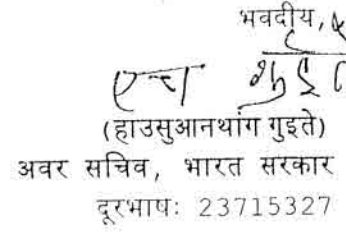 भवदीय,
एच
(हाउसुआनथांग गुइते)
अवर सचिव, भारत सरकार
दूरभाषः 23715327